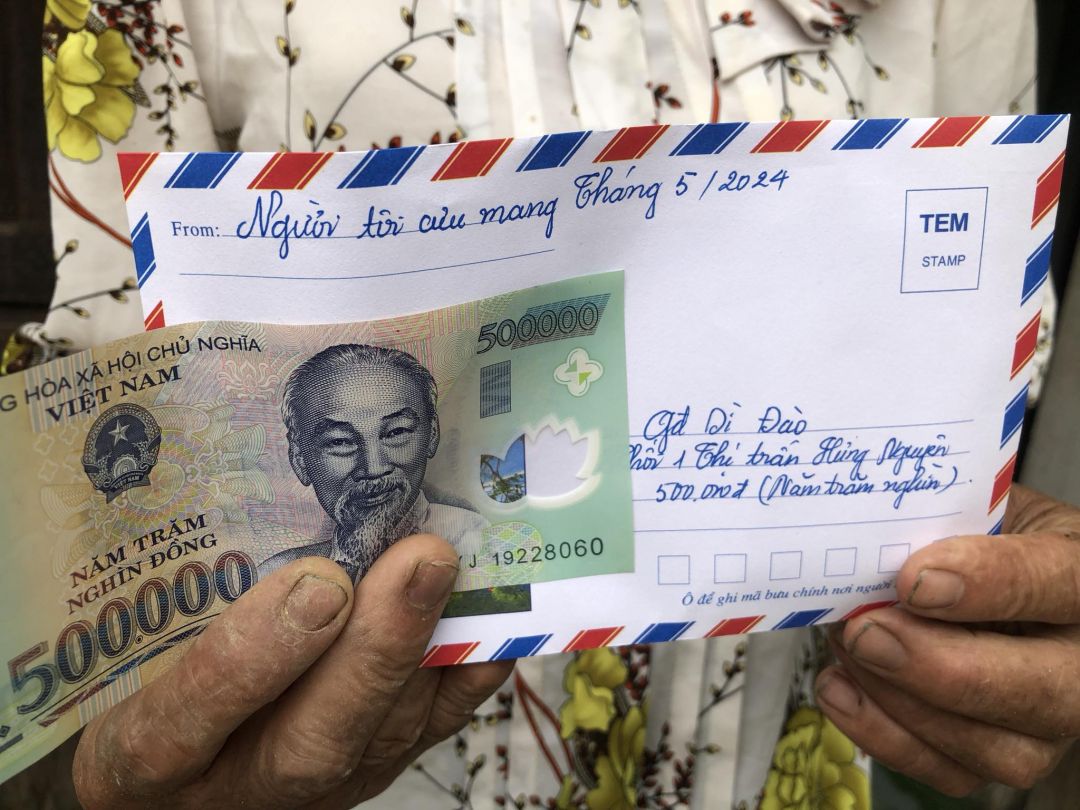 From: Người tôi cưu mang Tháng 5/2024
TEM
STAMP
Gđ Dì Đào
hối 1 Thị trấn Hưng Nguyên
500,000đ (Năm trăm nghìn).
Ô để ghi mã bưu chính nơi người
G HÒA XÃ HỘI CHỦ NGHĨA
VIỆT NAM
500000
NĂM TRĂM
NGHÌN ĐỒNG
500.000
J 19228060